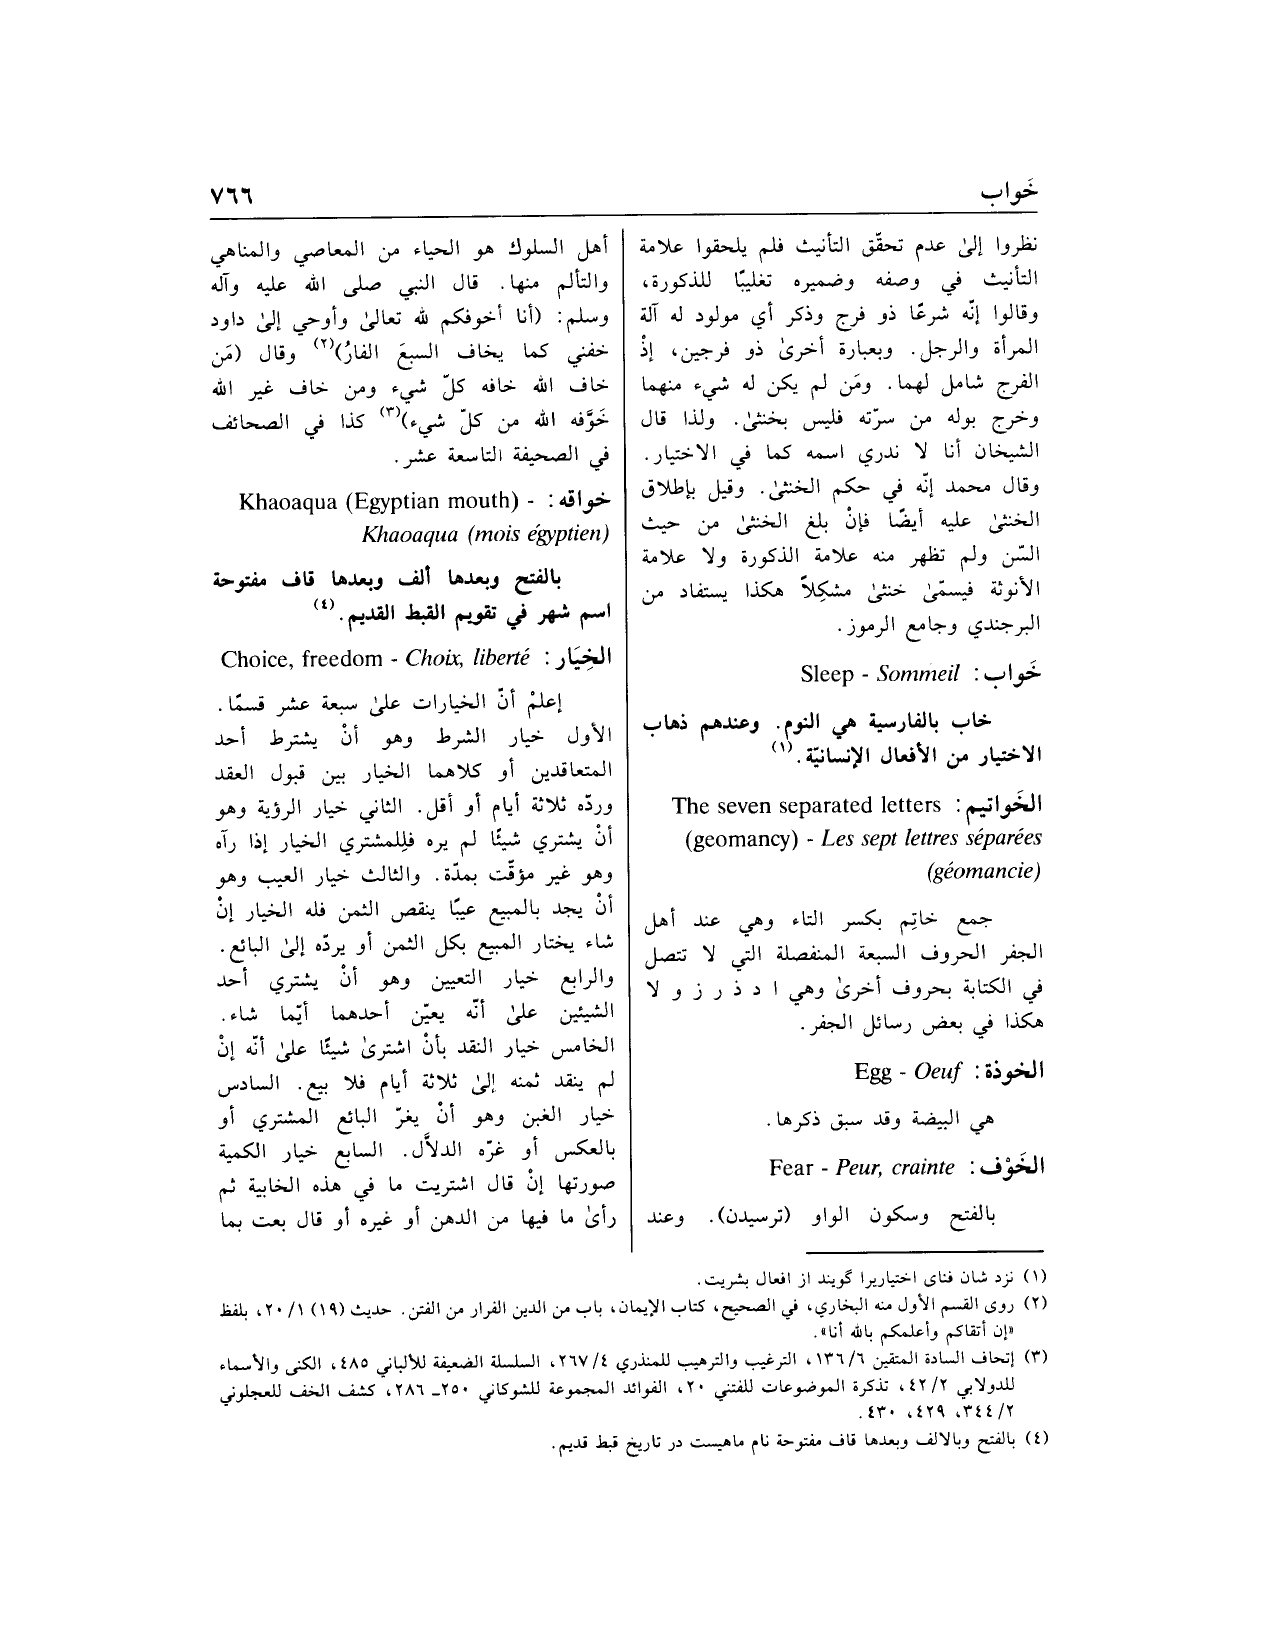 خَواب
٧٦٦
نظروا إلىٰ عدم تحقّق التأنيث فلم يلحقوا علامة
التأنيث في وصفه وضميره تغليبًا للذكورة،
وقالوا إنّه شرعًا ذو فرج وذكر أي مولود له آلة
المرأة والرجل. وبعبارة أخرىٰ ذو فرجين، إذْ
الفرج شامل لهما. ومَن لم يكن له شيء منهما
وخرج بوله من سرّته فليس بخنثىٰ. ولذا قال
الشيخان أنا لا ندري اسمه كما في الاختيار.
وقال محمد إنّه في حكم الخنثىٰ. وقيل بإطلاق
الخنثىٰ عليه أيضًا فإنْ بلغ الخنثىٰ من حيث
السّن ولم تظهر منه علامة الذكورة ولا علامة
الأنوثة فيسمّىٰ خنثىٰ مشكِلاً هكذا يستفاد من
البرجندي وجامع الرموز.
خَواب: Sleep - Sommeil
خاب بالفارسية هي النوم. وعندهم ذهاب
الاختيار من الأفعال الإنسانيّة.(١)
الخَواتيم: The seven separated letters
(geomancy) - Les sept lettres séparées
(géomancie)
جمع خاتِم بكسر التاء وهي عند أهل
الجفر الحروف السبعة المنفصلة التي لا تتصل
في الكتابة بحروف أخرىٰ وهي ا د ذ ر ز و لا
هكذا في بعض رسائل الجفر.
الخوذة: Egg - Oeuf
هي البيضة وقد سبق ذكرها.
الخَوْف: Fear - Peur, crainte
بالفتح وسكون الواو (ترسيدن). وعند
أهل السلوك هو الحياء من المعاصي والمناهي
والتألم منها. قال النبي صلى الله عليه وآله
وسلم: (أنا أخوفكم لله تعالىٰ وأوحي إلىٰ داود
خفني كما يخاف السبعَ الفارُ)(٢) وقال (مَن
خاف الله خافه كلّ شيء ومن خاف غير الله
خَوَّفه الله من كلّ شيء)(٣) كذا في الصحائف
في الصحيفة التاسعة عشر.
خواقه: Khaoaqua (Egyptian mouth) -
Khaoaqua (mois égyptien)
بالفتح وبعدها ألف وبعدها قاف مفتوحة
اسم شهر في تقويم القبط القديم.(٤)
الخِيَار: Choice, freedom - Choix, liberté
إعلمْ أنّ الخيارات علىٰ سبعة عشر قسمًا.
الأول خيار الشرط وهو أنْ يشترط أحد
المتعاقدين أو كلاهما الخيار بين قبول العقد
وردّه ثلاثة أيام أو أقل. الثاني خيار الرؤية وهو
أنْ يشتري شيئًا لم يره فلِلمشتري الخيار إذا رآه
وهو غير مؤقّت بمدّة. والثالث خيار العيب وهو
أنْ يجد بالمبيع عيبًا ينقص الثمن فله الخيار إنْ
شاء يختار المبيع بكل الثمن أو يردّه إلىٰ البائع.
والرابع خيار التعيين وهو أنْ يشتري أحد
الشيئين علىٰ أنّه يعيّن أحدهما أيّما شاء.
الخامس خيار النقد بأنْ اشترىٰ شيئًا علىٰ أنّه إنْ
لم ينقد ثمنه إلىٰ ثلاثة أيام فلا بيع. السادس
خيار الغبن وهو أنْ يغرّ البائع المشتري أو
بالعكس أو غرّه الدلاَّل. السابع خيار الكمية
صورتها إنْ قال اشتريت ما في هذه الخابية ثم
رأىٰ ما فيها من الدهن أو غيره أو قال بعت بما
(١) نزد شان فناى اختياريرا گويند از افعال بشريت.
(٢) روى القسم الأول منه البخاري، في الصحيح، كتاب الإيمان، باب من الدين الفرار من الفتن. حديث (١٩) ٢٠/١، بلفظ
«إن أتقاكم وأعلمكم بالله أنا».
(٣) إتحاف السادة المتقين ١٣٦/٦، الترغيب والترهيب للمنذري ٢٦٧/٤، السلسلة الضعيفة للألباني ٤٨٥، الكنى والأسماء
للدولابي ٤٢/٢، تذكرة الموضوعات للفتني ٢٠، الفوائد المجموعة للشوكاني ٢٥٠ـ ٢٨٦، كشف الخف للعجلوني
٣٤٤/٢، ٤٢٩، ٤٣٠.
(٤) بالفتح وبالالف وبعدها قاف مفتوحة نام ماهيست در تاريخ قبط قديم.